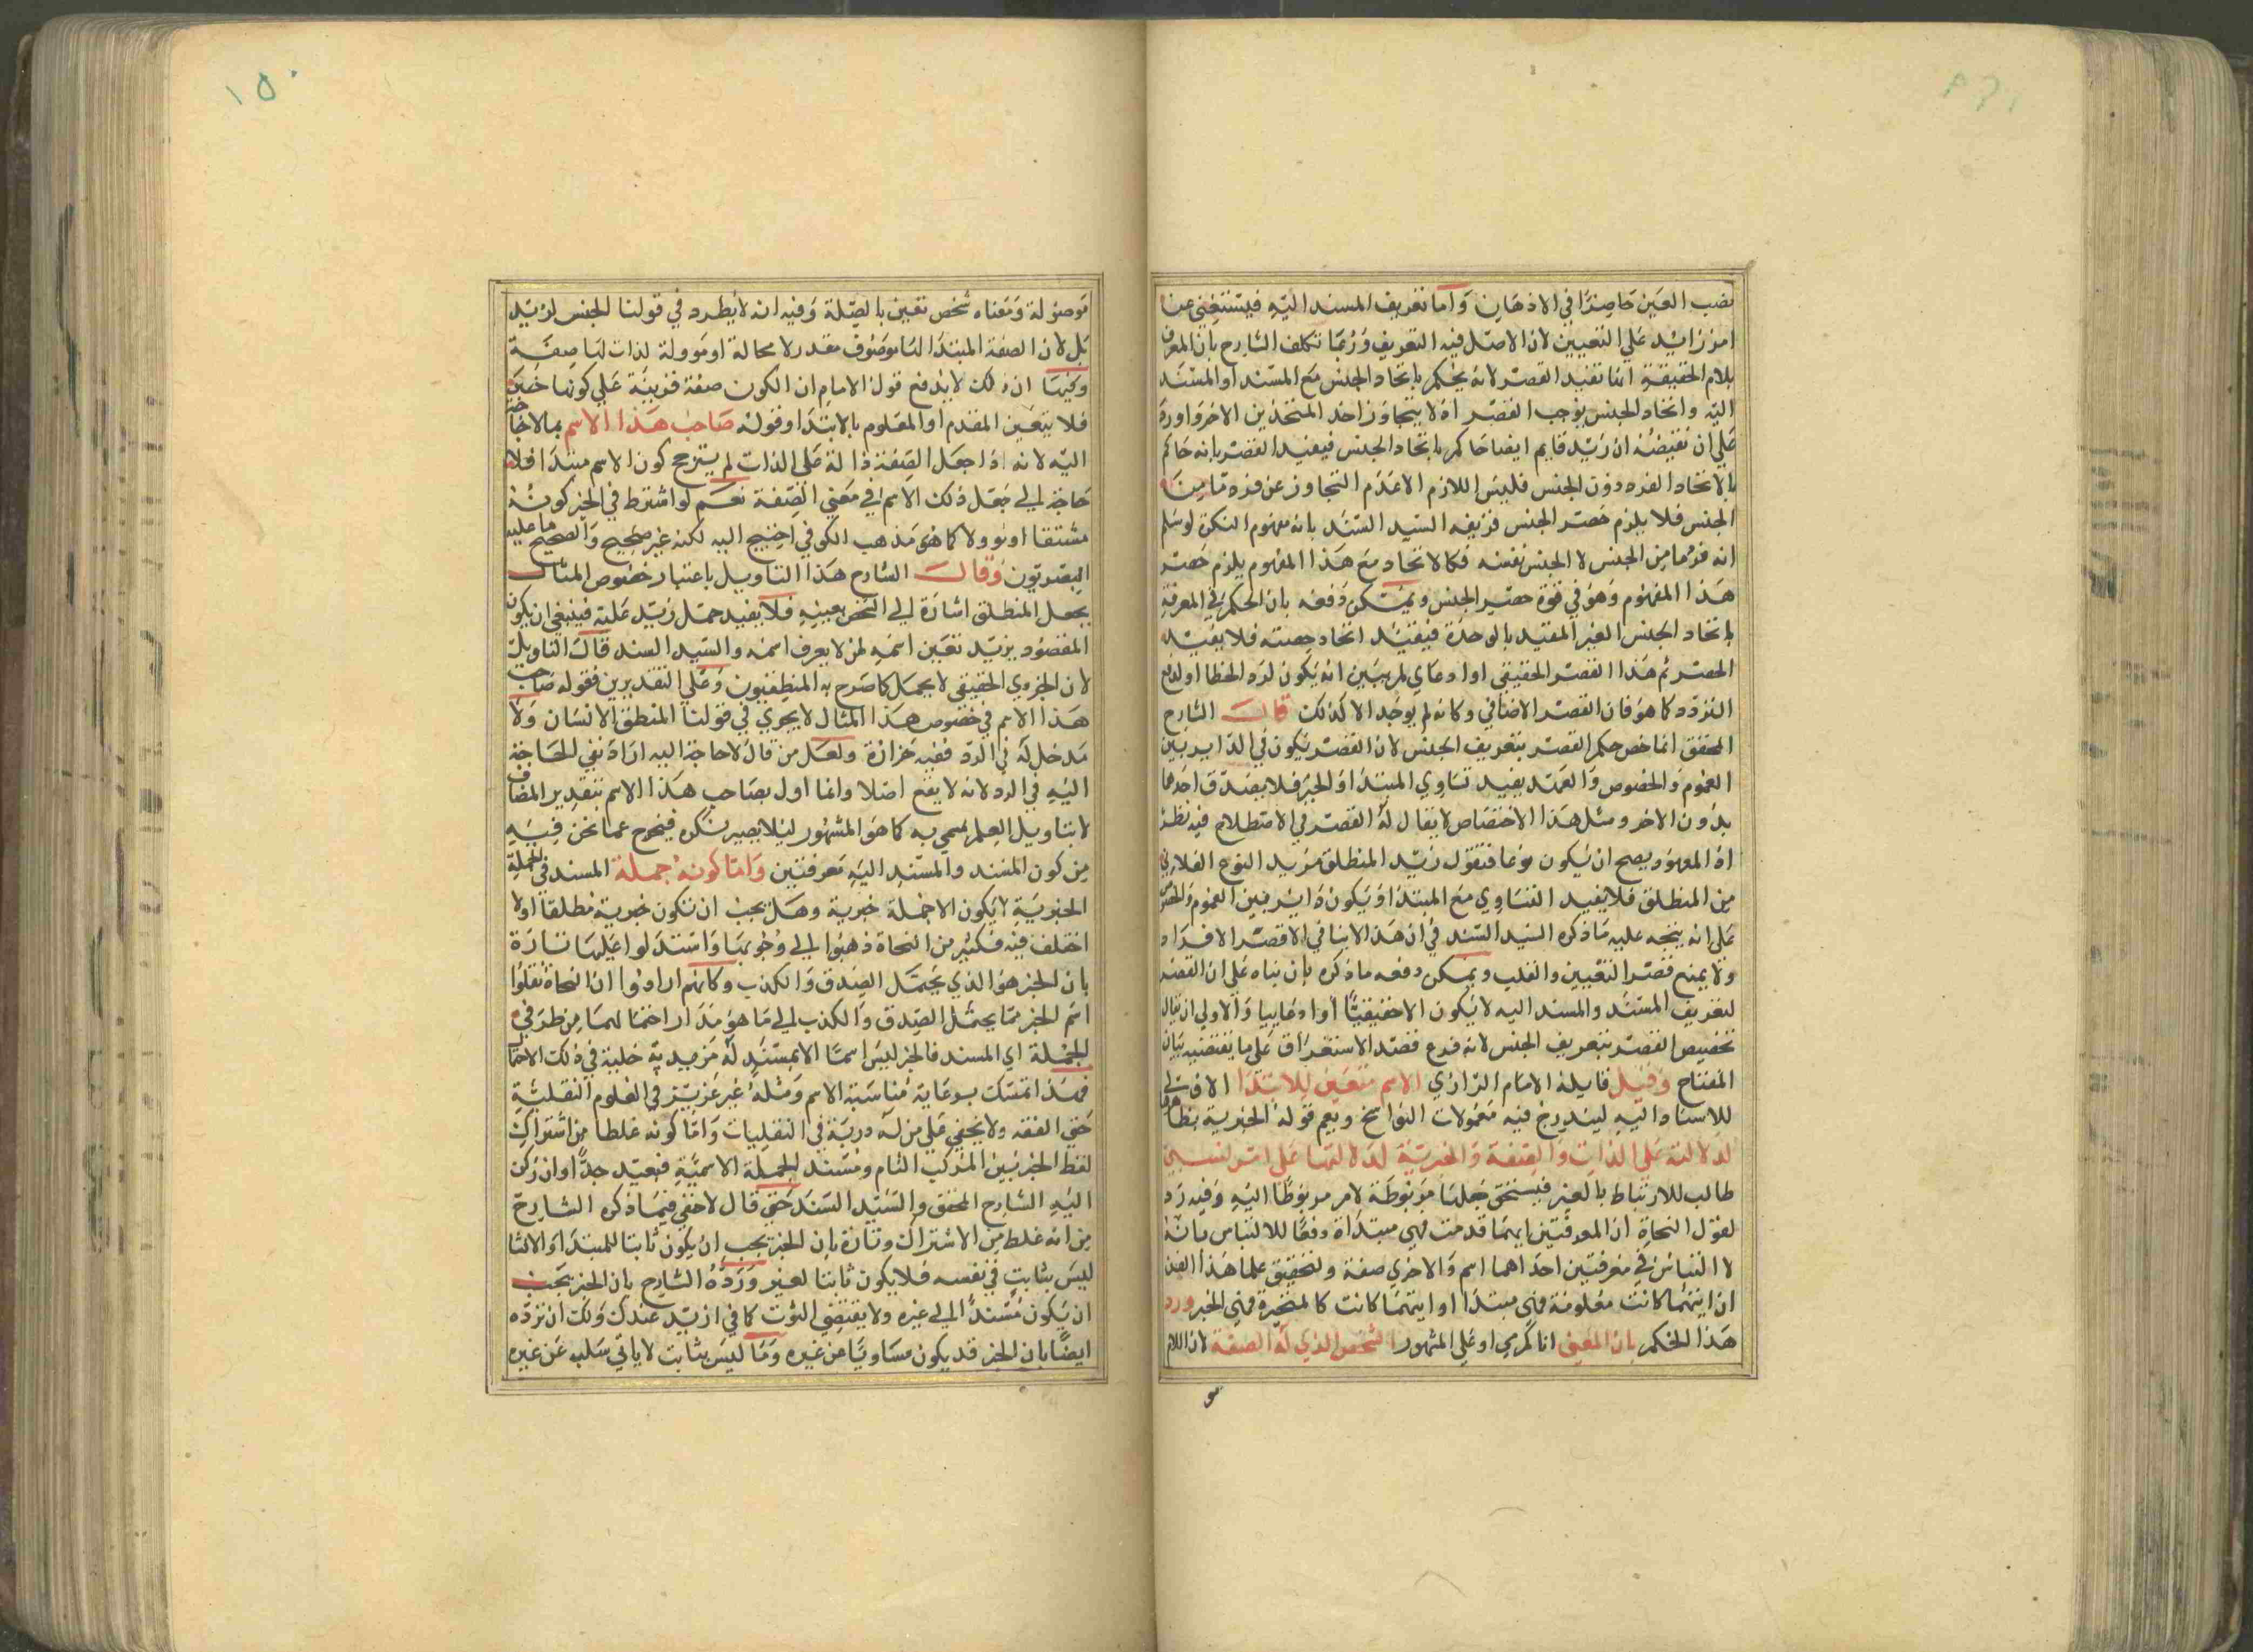 نصب العين حاضرا في الاذهان واما تعريف المسند اليه فيستغنى عنا
امر زائد على التعيين لان الاصل فيه التعريف وربما تكلف الشارح بان المعرف
بلام الحقيقة انما تفيد القصر لانه يحكم باتحاد الجنس مع المسند او المسند
اليه واتحاد الجنس يوجب القصر اذ لا يتجاوز احد المتحدين الاخر واورد
على ان نقيضه ان زيد قايم ايضا حاكم باتحاد الجنس فيفيد القصر بانه حاكم
بالاتحاد الفرد دون الجنس فليس اللازم الا عدم التجاوز عن فرد ما من
الجنس فلا يلزم حصر الجنس فزيفه السيد السند بان مفهوم النكرة لو سلم
انه فرد ما من الجنس لا الجنس نفسه فكالاتحاد مع هذا المفهوم يلزم حصر
هذا المفهوم وهو في قوة حصر الجنس ويمكن دفعه بان الحكم في المعرفة
باتحاد الجنس الغير المقيد بالوحدة فيفيد اتحاد حصته فلا يفيد
الحصر ثم هذا القصر الحقيقي او ادعاي لم يبين انه يكون لرد الخطا او لدفع
التردد كما هو فان القصر الاضافي وكانه لم يوجد الا كذلك قال الشارح
المحقق انما خص حكم القصر بتعريف الجنس لان القصر يكون في الدايربين
العموم والخصوص والعهد يفيد تساوي المبتدا والخبر فلا يصدق احدهما
بدون الاخر ومثل هذا الاختصاص لا يقال له القصر في الاصطلاح فيه نظر
اذ المعهود يصح ان يكون نوعا فتقول زيد المنطلق مريد النوع الفلاني
من المنطلق فلا يفيد التساوي مع المبتدا او يكون دايربين العموم والخصوص
على انه يتجه عليه ما ذكره السيد السند في ان هذا لاينافي الا قصر الافراد
ولا يمنع قصر التعيين والقلب ويمكن دفعه ما ذكره بان بناه على ان القصر
لتعريف المسند والمسند اليه لا يكون الا حقيقيا او ادعاييا والاولى ان يقال
تخصيص القصر بتعريف الجنس لانه فرع قصد الاستغراق على ما يقتضيه بيان
المفتاح وقيل قايله الامام الرازي الاسم متعين للابتدا الاوفى
للاسناد اليه ليندرج فيه معمولات النواسخ ويعم قوله الخبرية بظاهره
لدلالته على الذات والصفة والخبرية لدلالتها على امر نسبي
طالب للارتباط بالغير فيستحق جعلها مربوطة لامر مربوطا اليه وفيه رد
لقول النحاة ان المعرفتين ايهما قدمت فهي مبتداة دفعا للالتباس بانه
لا التباس في معرفتين احداهما اسم والاخرى صفة ولتحقيق علما هذا الفن
ان ايتهما كانت معلومة فهي مبتدا او ايتهما كانت كالمتحيرة فهي الخبر ورد
هذا الحكم بان المعنى انا كرى او على المشهور الشخص الذي له الصفة لان اللام
مو
١٥٠
موصولة ومعناه شخص تعين بالصلة وفيه انه لا يطرد في قولنا الجنس لزيد
بل لان الصفة المبتدا لها موصوف مقدر لا محالة او موولة لذات لها صفة
وفيها ان ذلك لا يدفع قول الامام ان الكون صفة قرينة على كونها خبرا
فلا يتعين المقدم او المعلوم بالابتدا وقوله صاحب هذا الاسم بما لا حاجة
اليه لانه اذا جعل الصفة دالة على الذات لم يترجح كون الاسم مبتدا فلا
حاجة الى جعل ذلك الاسم في معنى الصفة نعم لو اشترط في الخبر كونه
مشتقا او موولا كما هو مذهب الكوفي احتيج اليه لكنه غير صحيح والصحيح ما عليه
البصريون وقال الشارح هذا التاويل باعتبار خصوص المثال
بجعل المنطلق اشارة الى الشخص بعينه فلا يفيد حمل زيد عليه فينبغي ان يكون
المقصود بزيد تعين اسمه لمن لا يعرف اسمه والسيد السند قال التاويل
لان الجزوي الحقيقي لا يحمل كما صرح به المنطقيون وعلى التقديرين فقوله صاحب
هذا الاسم في خصوص هذا المثال لا يجري في قولنا المنطق الانسان ولا
مدخل له في الرد ففيه حزازة ولعل من قال لا حاجة اليه اراد نفي الحاجة
اليه في الرد لانه لا يقع اصلا وانما اول بصاحب هذا الاسم بتقدير المضاف
لا بتاويل العلم بمسمى به كما هو المشهور ليلا يصير نكرة فيخرج عما نحن فيه
من كون المسند والمسند اليه معرفتين واما كونه جملة المسند في الجملة
الخبرية لا يكون الا جملة خبرية وهل يجب ان تكون خبرية مطلقا اولا
اختلف فيه فكثير من النحاة ذهبوا الى وجوبها واستدلوا عليها تارة
بان الخبر هو الذي يحتمل الصدق والكذب وكانهم ارادوا ان النحاة نقلوا
اسم الخبر مما يحتمل الصدق والكذب الى ما هو مدار احتمالهما من طرفي
الجملة اي المسند فالخبر ليس اسما الا لمسند له مزيد يد خلية في ذلك الاحتمال
فهذا تمسك برعاية مناسبة الاسم ومثله غير عزيز في العلوم النقلية
حتى الفقه ولا يخفى على من له دربة في النقليات واما كونه غلطا من اشتراك
لفظ الخبر بين المركب التام ومسند الجملة الاسمية فبعيد جدا وان ركن
اليه الشارح المحقق والسيد السند حتى قال لا خفي فيما ذكره الشارح
من انه غلط من الاشتراك وتارة بان الخبر يجب ان يكون ثابتا للمبتدا والانشا
ليس بثابت في نفسه فلا يكون ثابتا لغير ورده الشارح بان الخبر يجب
ان يكون مسندا الى غيره ولا يقتضي الثبوت كما في ازيد عندك ولك ان ترده
ايضا بان الخبر قد يكون مساويا عن غيره وما ليس بثابت لا ياتي سلبه عن غيره